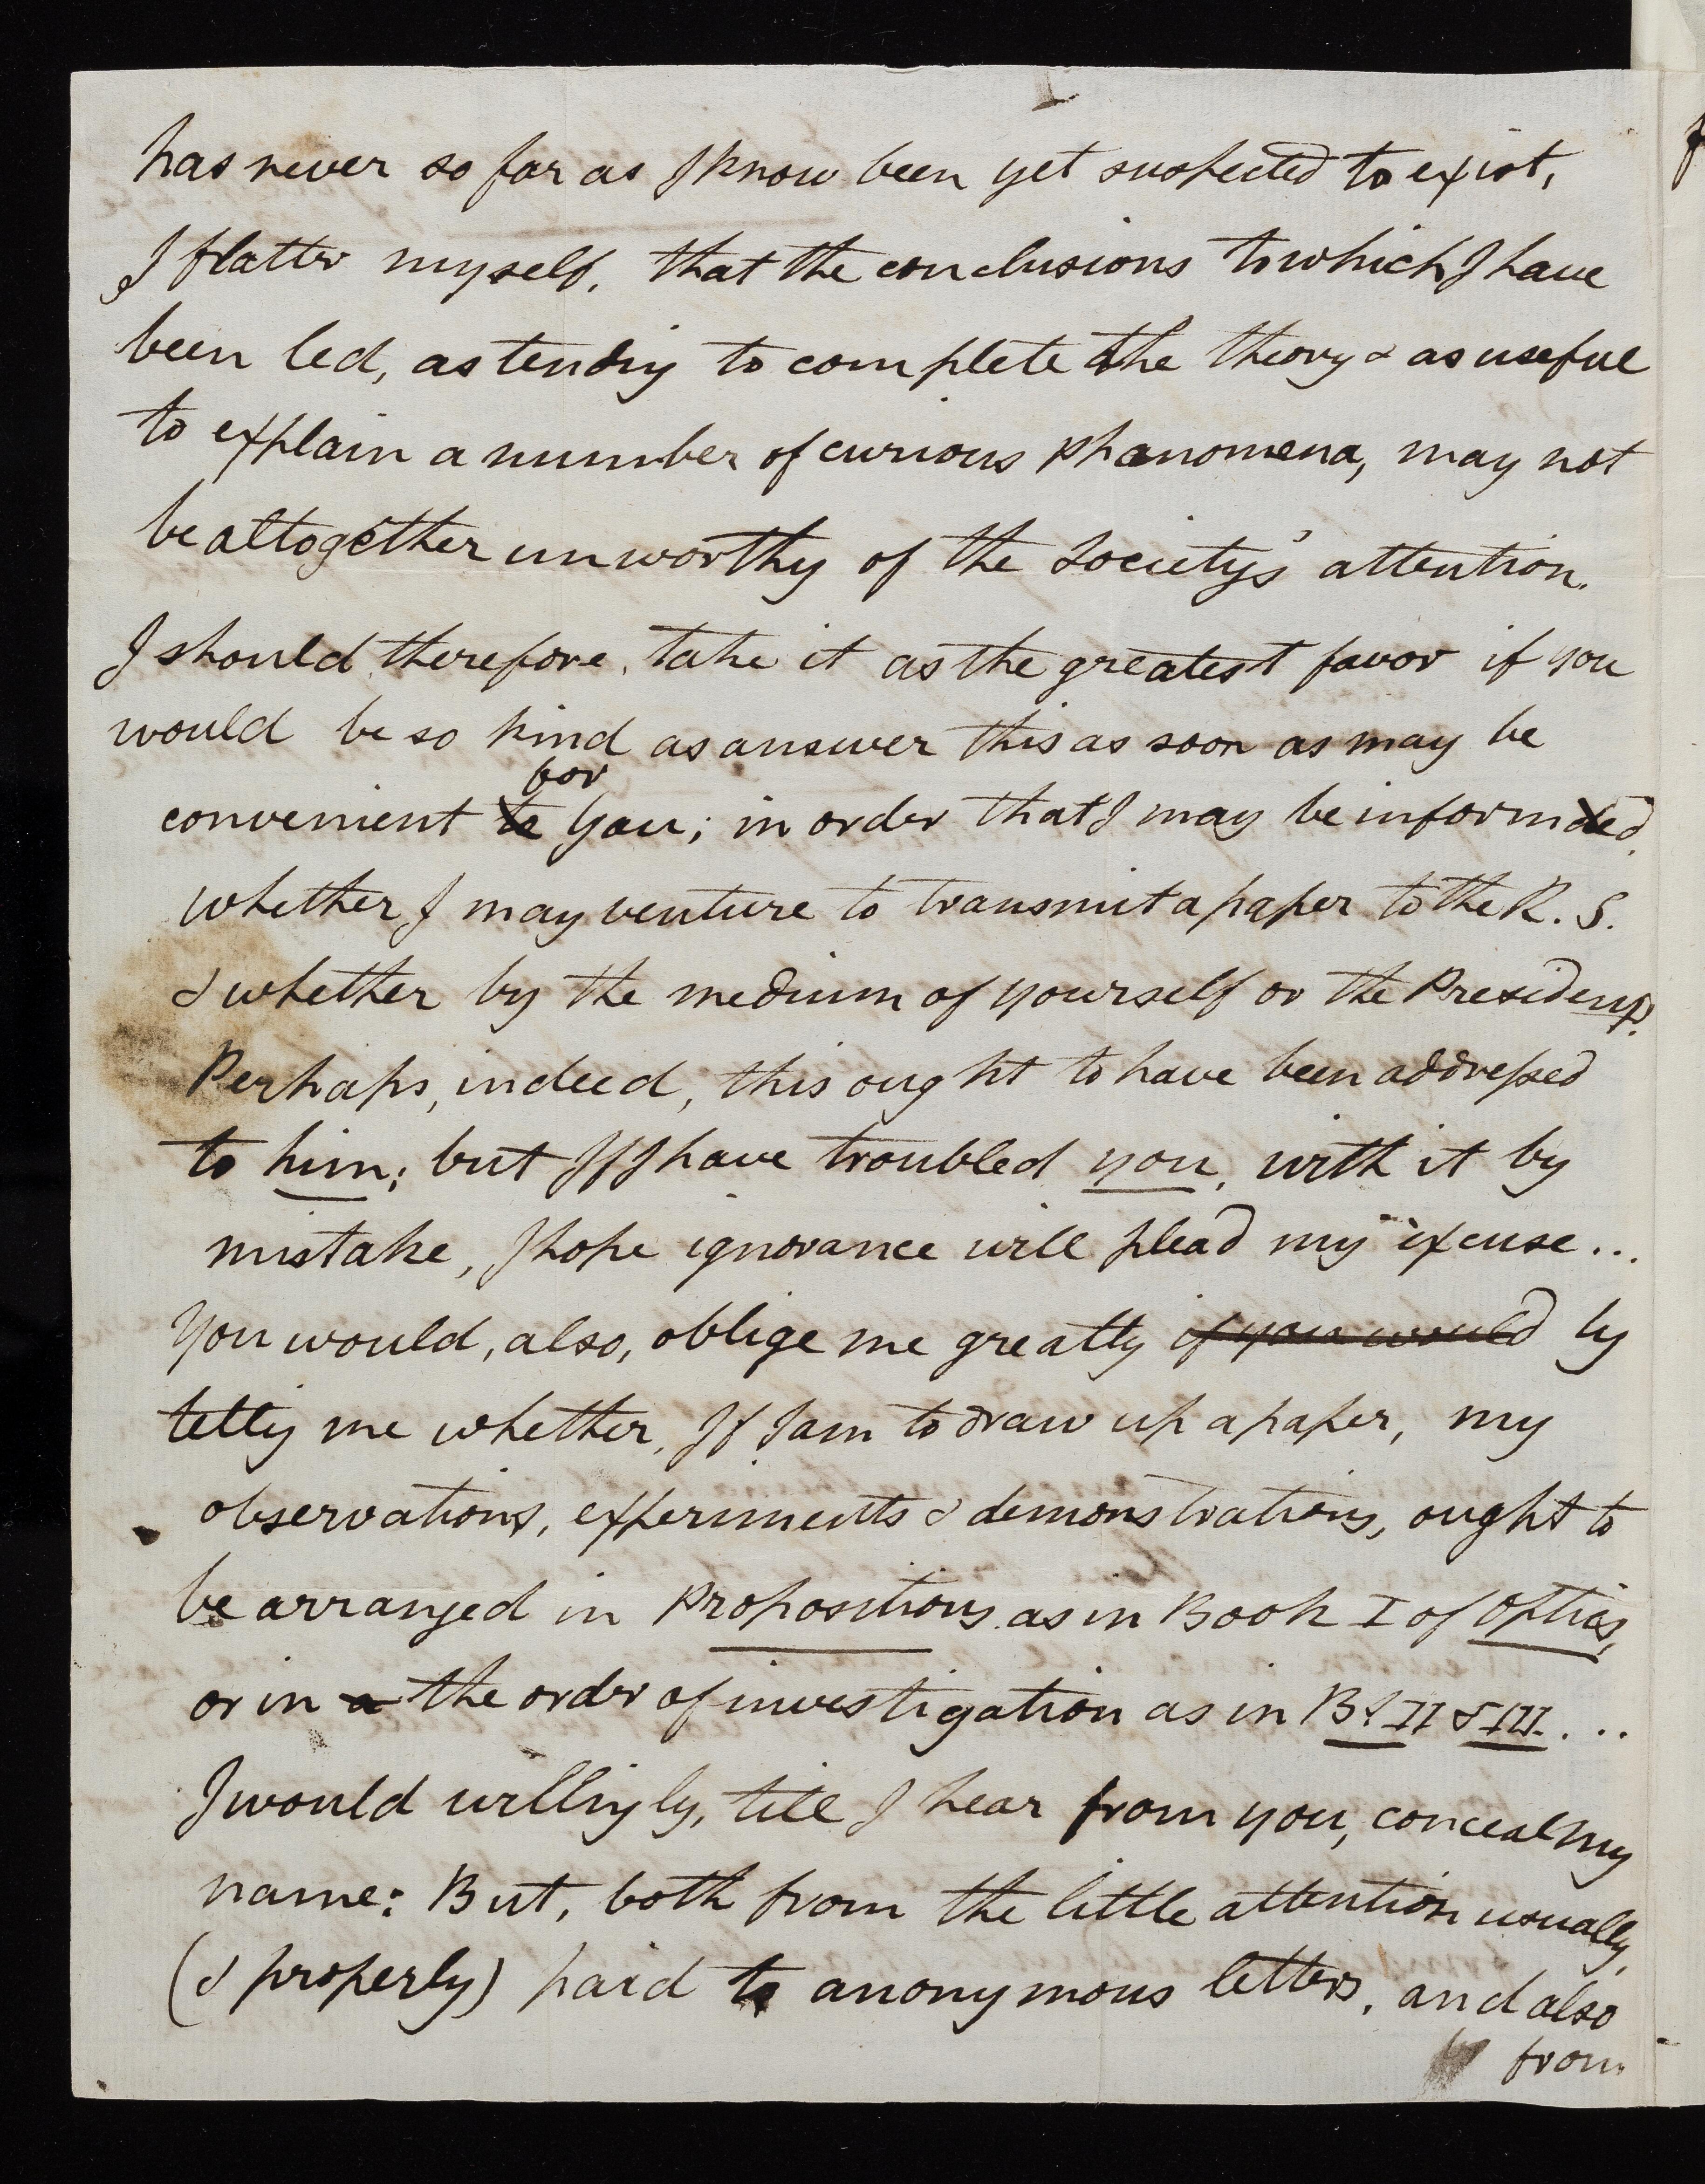 has never so far as I know been yet suspected to exist,
I flatter myself, that the conclusions to which I have
been led, as tending to complete the theory & as useful
to explain a number of curious phænomena, may not
be altogether unworthy of the Society's attention.
I should, therefore, take it as the greatest favor if you
would be so kind as answer this as soon as may be
for
convenient to You; in order that I may be informed
whether I may venture to transmit a paper to the R. S.
& whether by the medium of yourself or the President.
Perhaps, indeed, this ought to have been addressed
to him; but If I have troubled you, with it by
mistake, I hope ignorance will plead my excuse...
You would, also, oblige me greatly if you would by
telling me whether, If I am to draw up a paper, my
observations, experiments & demonstrations, ought to
be arranged in Propositions as in Book I of Optics,
or in a the order of investigation as in Bs. II & III. ...
I would willingly, till I hear from you, conceal my
name: But, both from the little attention usually,
(& properly) paid to anonymous letters, and also
from